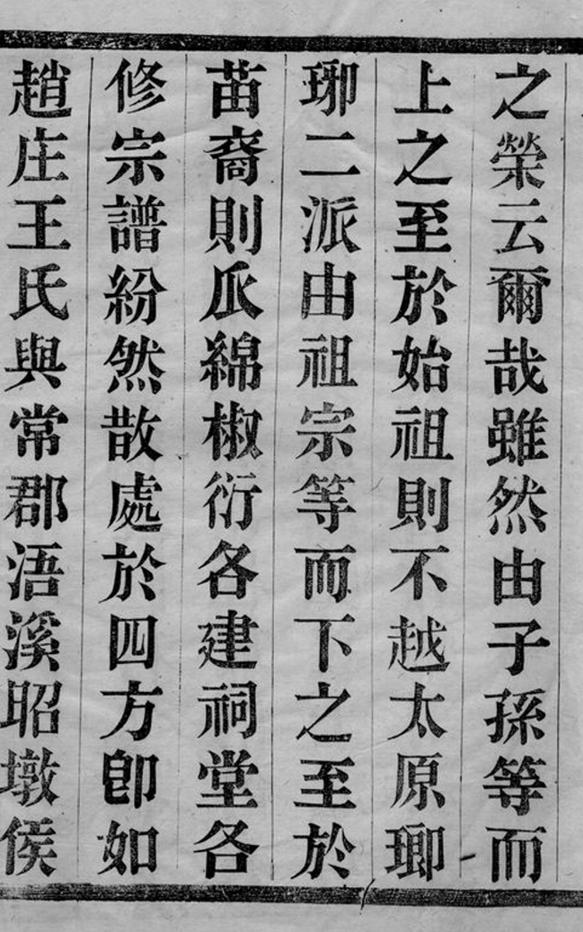 之榮云爾哉雖然由子孫等而
上之至於始祖則不越太原瑯
琊二派由祖宗等而下之至於
苗裔則瓜綿椒衍各建祠堂各
修宗譜紛然散處於四方卽如
趙庄王氏與常郡浯溪昭墩侯